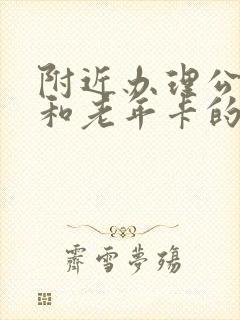 附近办理公
和老年卡的
霁雪梦殇